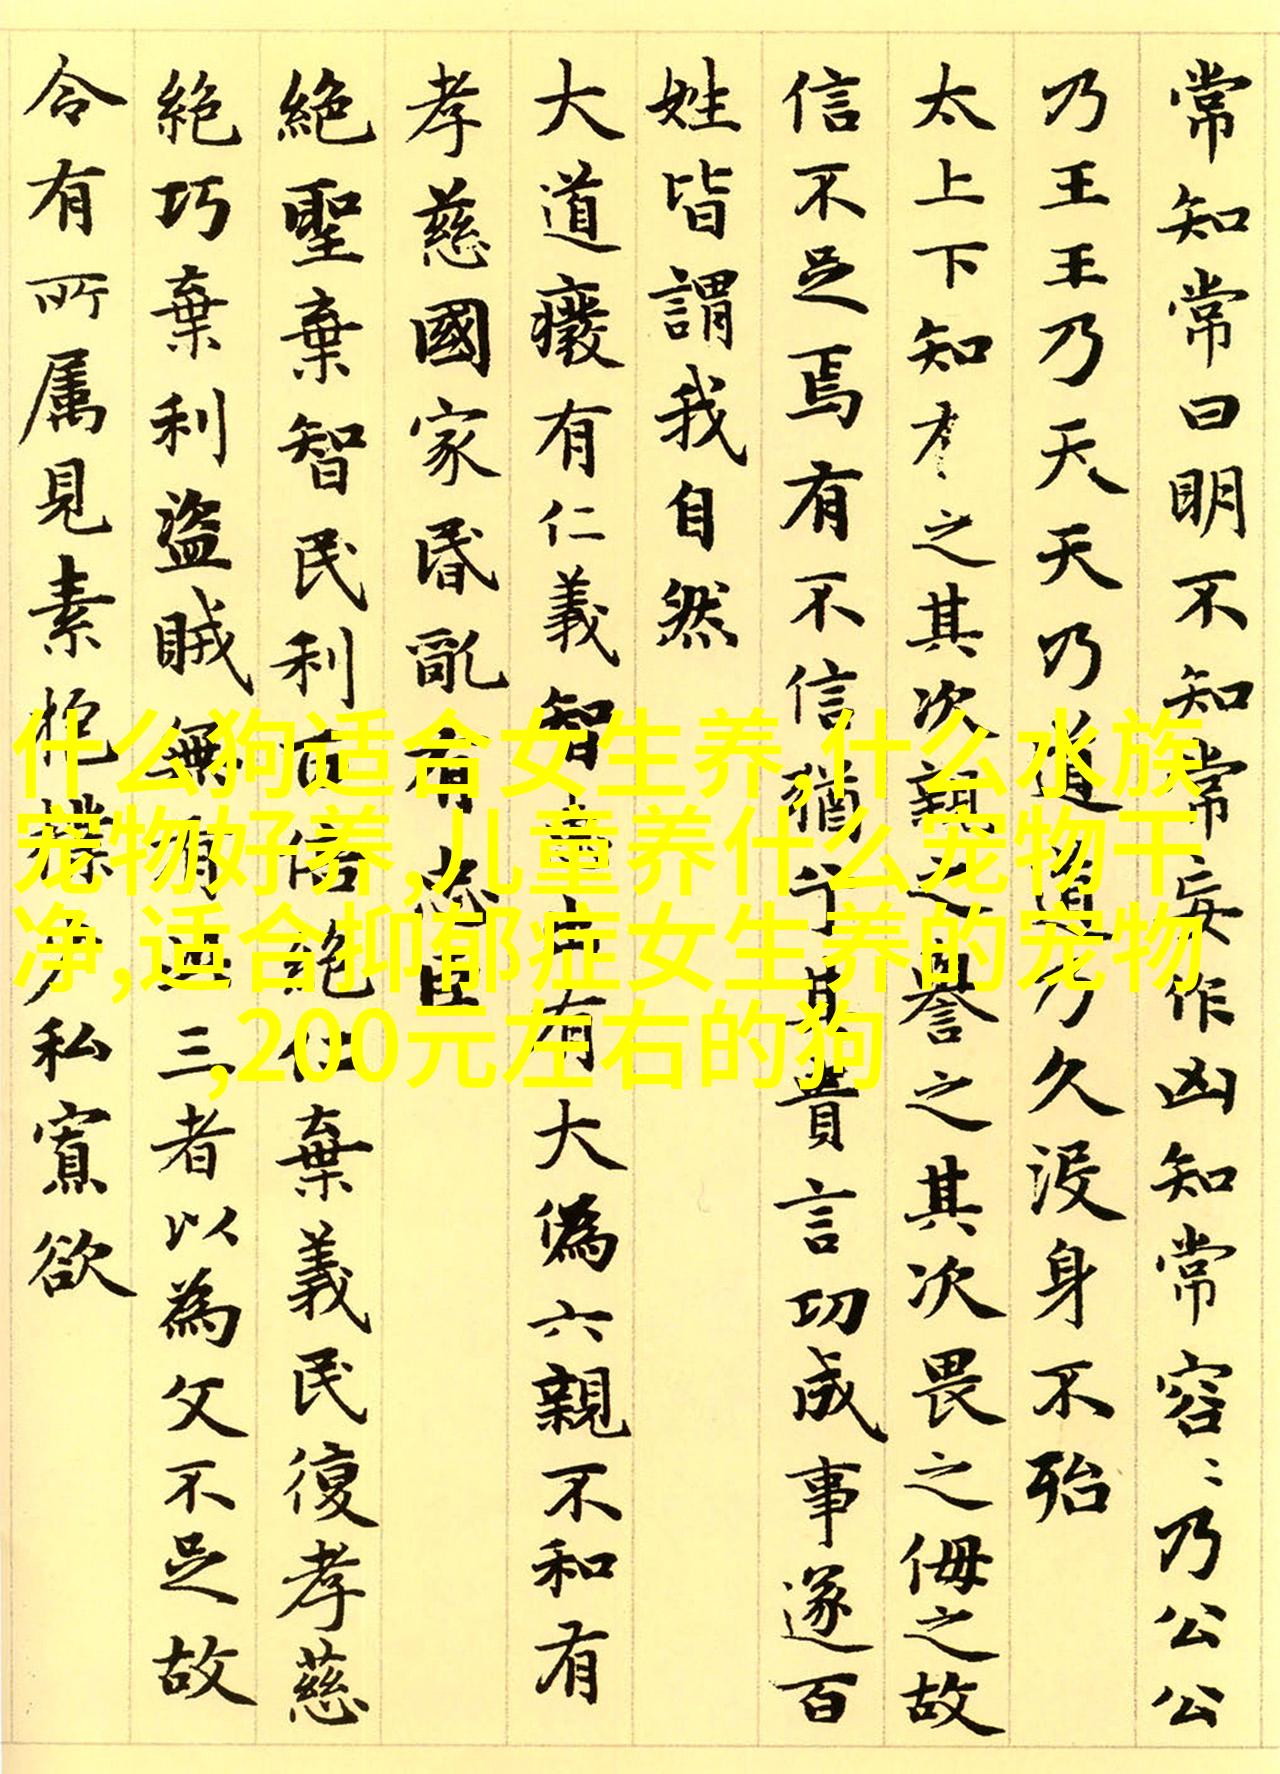 常知常曰明不知常妄作凶知常容〻乃公公
乃王王乃天天乃道道乃久没身不殆
太上下知有之其次親之譽之其次畏之侮之故
信不足焉有不信猶乎其貴言功成事遂百
姓皆謂我自然
大道癈有仁義智有大偽六親不和有
孝慈國家昬亂有忠臣
絶聖棄智民利百倍絶仁棄義民復孝慈
絶巧棄利盜賊無有此三者以為文不足故
令有所属見素抱樸少私寡欲
什么狗适合女生养,什么水族
宠物好养,儿童养什么宠物干
净,适合抑郁症女生养的宠物
,200元左右的狗